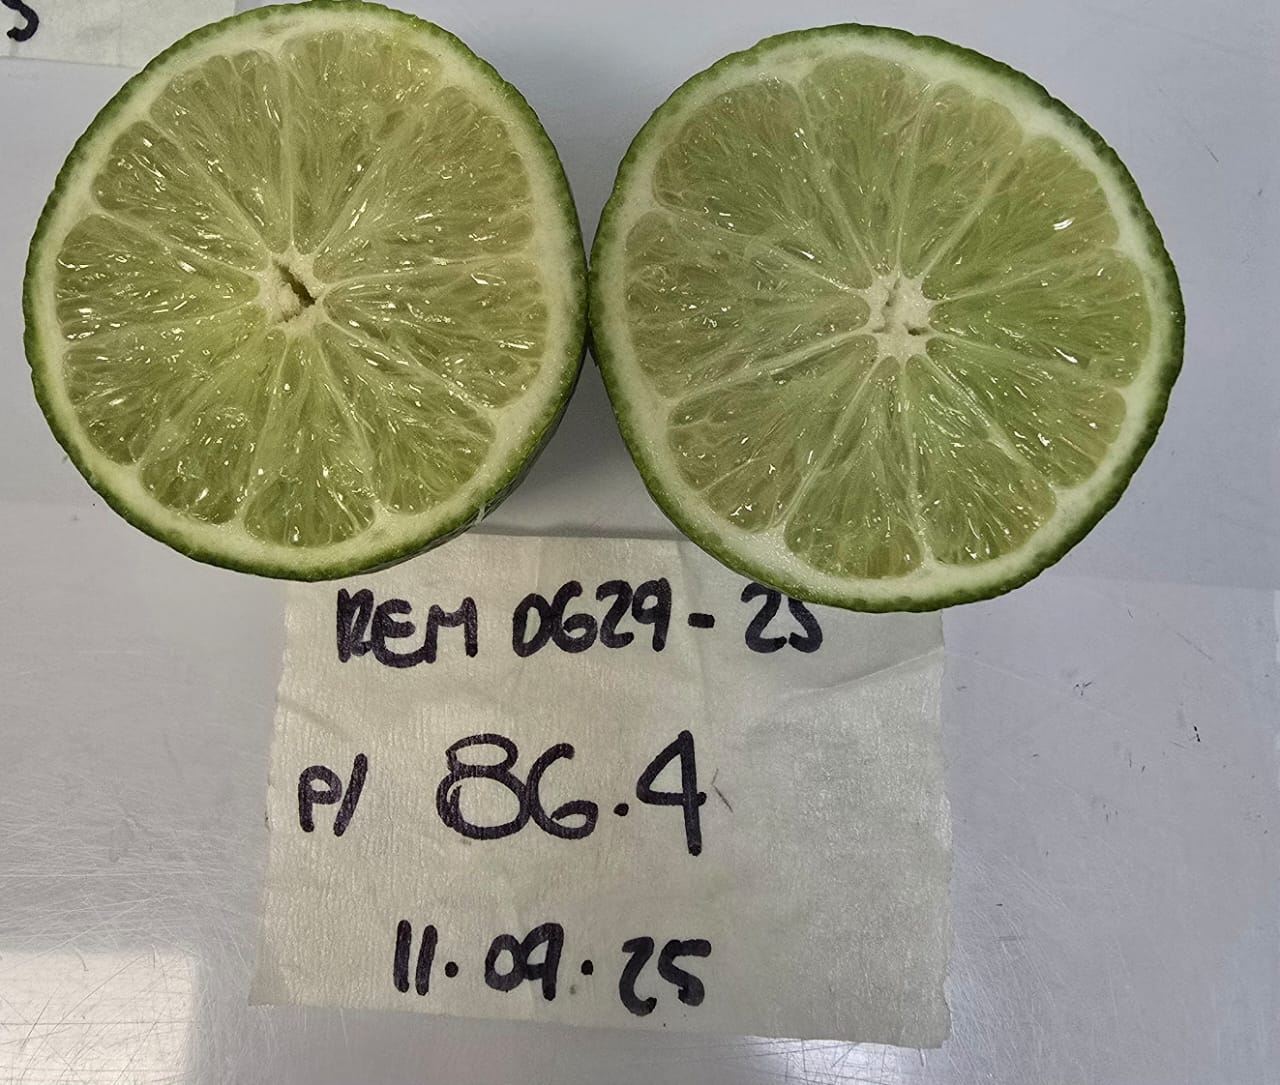 5
REM DG29-25
P/ 86.4
11.09.25